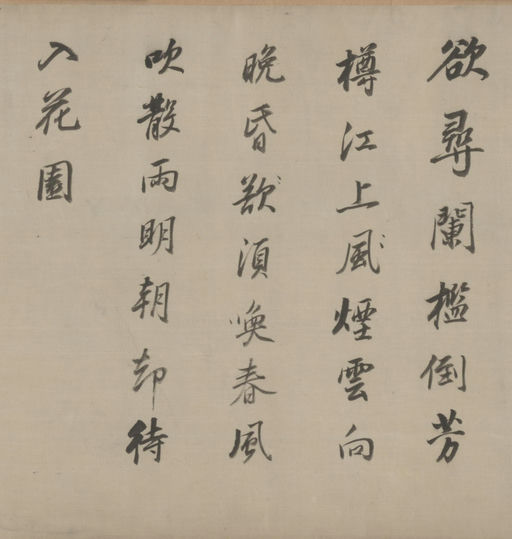 欲尋闌檻倒芳
樽江上風煙雲向
晚昏須喚春風
吹散雨明朝却待
入花園